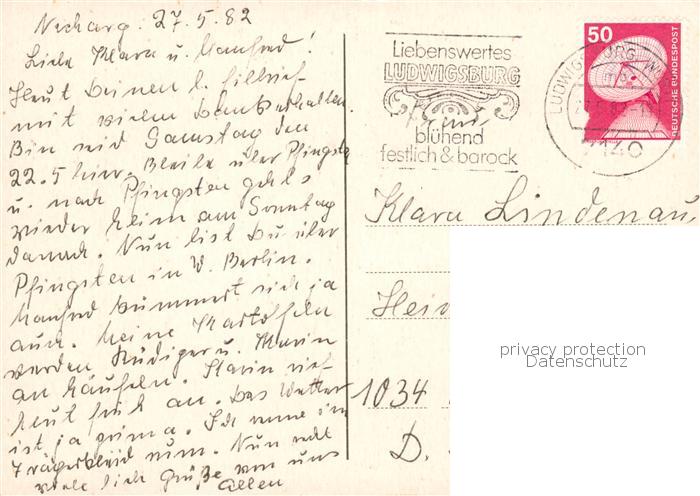 Neckarg. 27.5.82
Liebe Klara u. Manfred!
Heut Deinen l. Eilbrief
mit vielem Dank erhalten.
Bin seid Samstag den
22.5 hier. Bleibe über Pfingsten
u. nach Pfingsten gehts
wieder heim am Sonntag
danach. Nun bist Du über
Pfingsten in W. Berlin.
Manfred kümmert sich ja
auch. Meine Kartoffeln
werden Rüdiger u. Marin
an häufeln. Marin rief
heut früh an. Das Wetter
ist ja prima. Ich renne im
Trägerkleid rum. Nun recht
viele lieb Grüße von uns
allen
Liebenswertes
LUDWIGSBURG
blühend
festlich & barock
50
DEUTSCHE BUNDESPOST
LUDWIGSBURG
7140
Klara Lindenau
Hein
privacy protection
Datenschutz
1034
D.